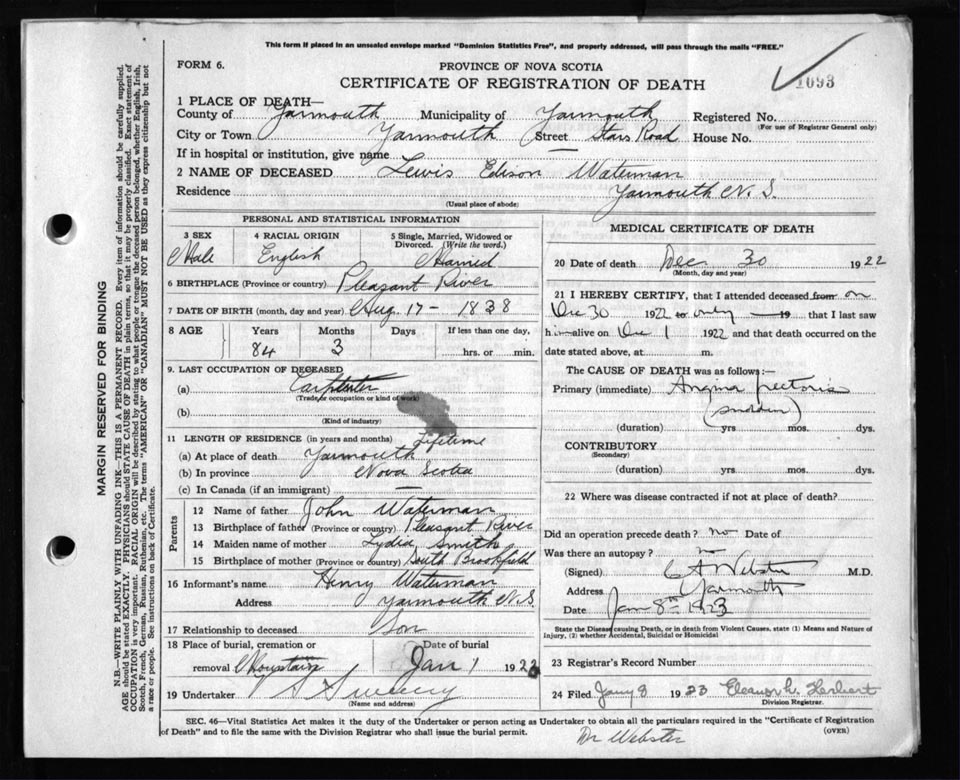 This form if placed in an unsealed envelope marked "Dominion Statistics Free", and properly addressed, will pass through the mails "FREE."
FORM 6.
PROVINCE OF NOVA SCOTIA
CERTIFICATE OF REGISTRATION OF DEATH
1093
1 PLACE OF DEATH—
County of Yarmouth Municipality of Yarmouth Registered No.
(For use of Registrar General only)
City or Town Yarmouth Street Stars Road House No.
If in hospital or institution, give name —
2 NAME OF DECEASED Lewis Edison Waterman
Residence Yarmouth N. S.
(Usual place of abode)
PERSONAL AND STATISTICAL INFORMATION
3 SEX 4 RACIAL ORIGIN 5 Single, Married, Widowed or Divorced. (Write the word.)
Male English Married
6 BIRTHPLACE (Province or country) Pleasant River
7 DATE OF BIRTH (month, day and year) Aug. 17 - 1838
8 AGE Years Months Days If less than one day,
84 3 hrs. or min.
9. LAST OCCUPATION OF DECEASED
(a) Carpenter
(Trade, or occupation or kind of work)
(b)
(Kind of industry)
11 LENGTH OF RESIDENCE (in years and months) Lifetime
(a) At place of death Yarmouth
(b) In province Nova Scotia
(c) In Canada (if an immigrant) —
Parents
12 Name of father John Waterman
13 Birthplace of father (Province or country) Pleasant River
14 Maiden name of mother Lydia Smith
15 Birthplace of mother (Province or country) South Brookfield
16 Informant's name Henry Waterman
Address Yarmouth N.S.
17 Relationship to deceased Son
18 Place of burial, cremation or Date of burial
removal Mountain Jan 1 1923
19 Undertaker V S Sweeny
(Name and address)
MEDICAL CERTIFICATE OF DEATH
20 Date of death Dec 30 1922
(Month, day and year)
21 I HEREBY CERTIFY, that I attended deceased from on
Dec 30 1922 to only 19 that I last saw
him alive on Dec 1 1922 and that death occurred on the
date stated above, at m.
The CAUSE OF DEATH was as follows:—
Primary (immediate) Angina pectoris
(sudden)
(duration) yrs mos. dys.
CONTRIBUTORY
(Secondary)
(duration) yrs. mos. dys.
22 Where was disease contracted if not at place of death?
Did an operation precede death? no Date of
Was there an autopsy? no
(Signed). Webster M.D.
Address Yarmouth
Date Jan 8th 1923
State the Disease causing Death, or in death from Violent Causes, state (1) Means and Nature of Injury, (2) whether Accidental, Suicidal or Homicidal
23 Registrar's Record Number
24 Filed Jany 8 1923 Eleanor L. Herbert
Division Registrar.
SEC. 46—Vital Statistics Act makes it the duty of the Undertaker or person acting as Undertaker to obtain all the particulars required in the "Certificate of Registration
of Death" and to file the same with the Division Registrar who shall issue the burial permit.
(OVER)
Dr Webster
MARGIN RESERVED FOR BINDING
N.B.—WRITE PLAINLY WITH UNFADING INK—THIS IS A PERMANENT RECORD. Every item of information should be carefully supplied.
AGE should be stated EXACTLY. PHYSICIANS should STATE CAUSE OF DEATH in plain terms, so that it may be properly classified. Exact statement of
OCCUPATION is very important. RACIAL ORIGIN will be described by stating to what people or tongue the deceased person belonged, whether English, Irish,
Scotch, French, German, Russian, Ruthenian, etc. The terms "AMERICAN" OR "CANADIAN" MUST NOT BE USED as they express citizenship but not
a race or people. See instructions on back of Certificate.